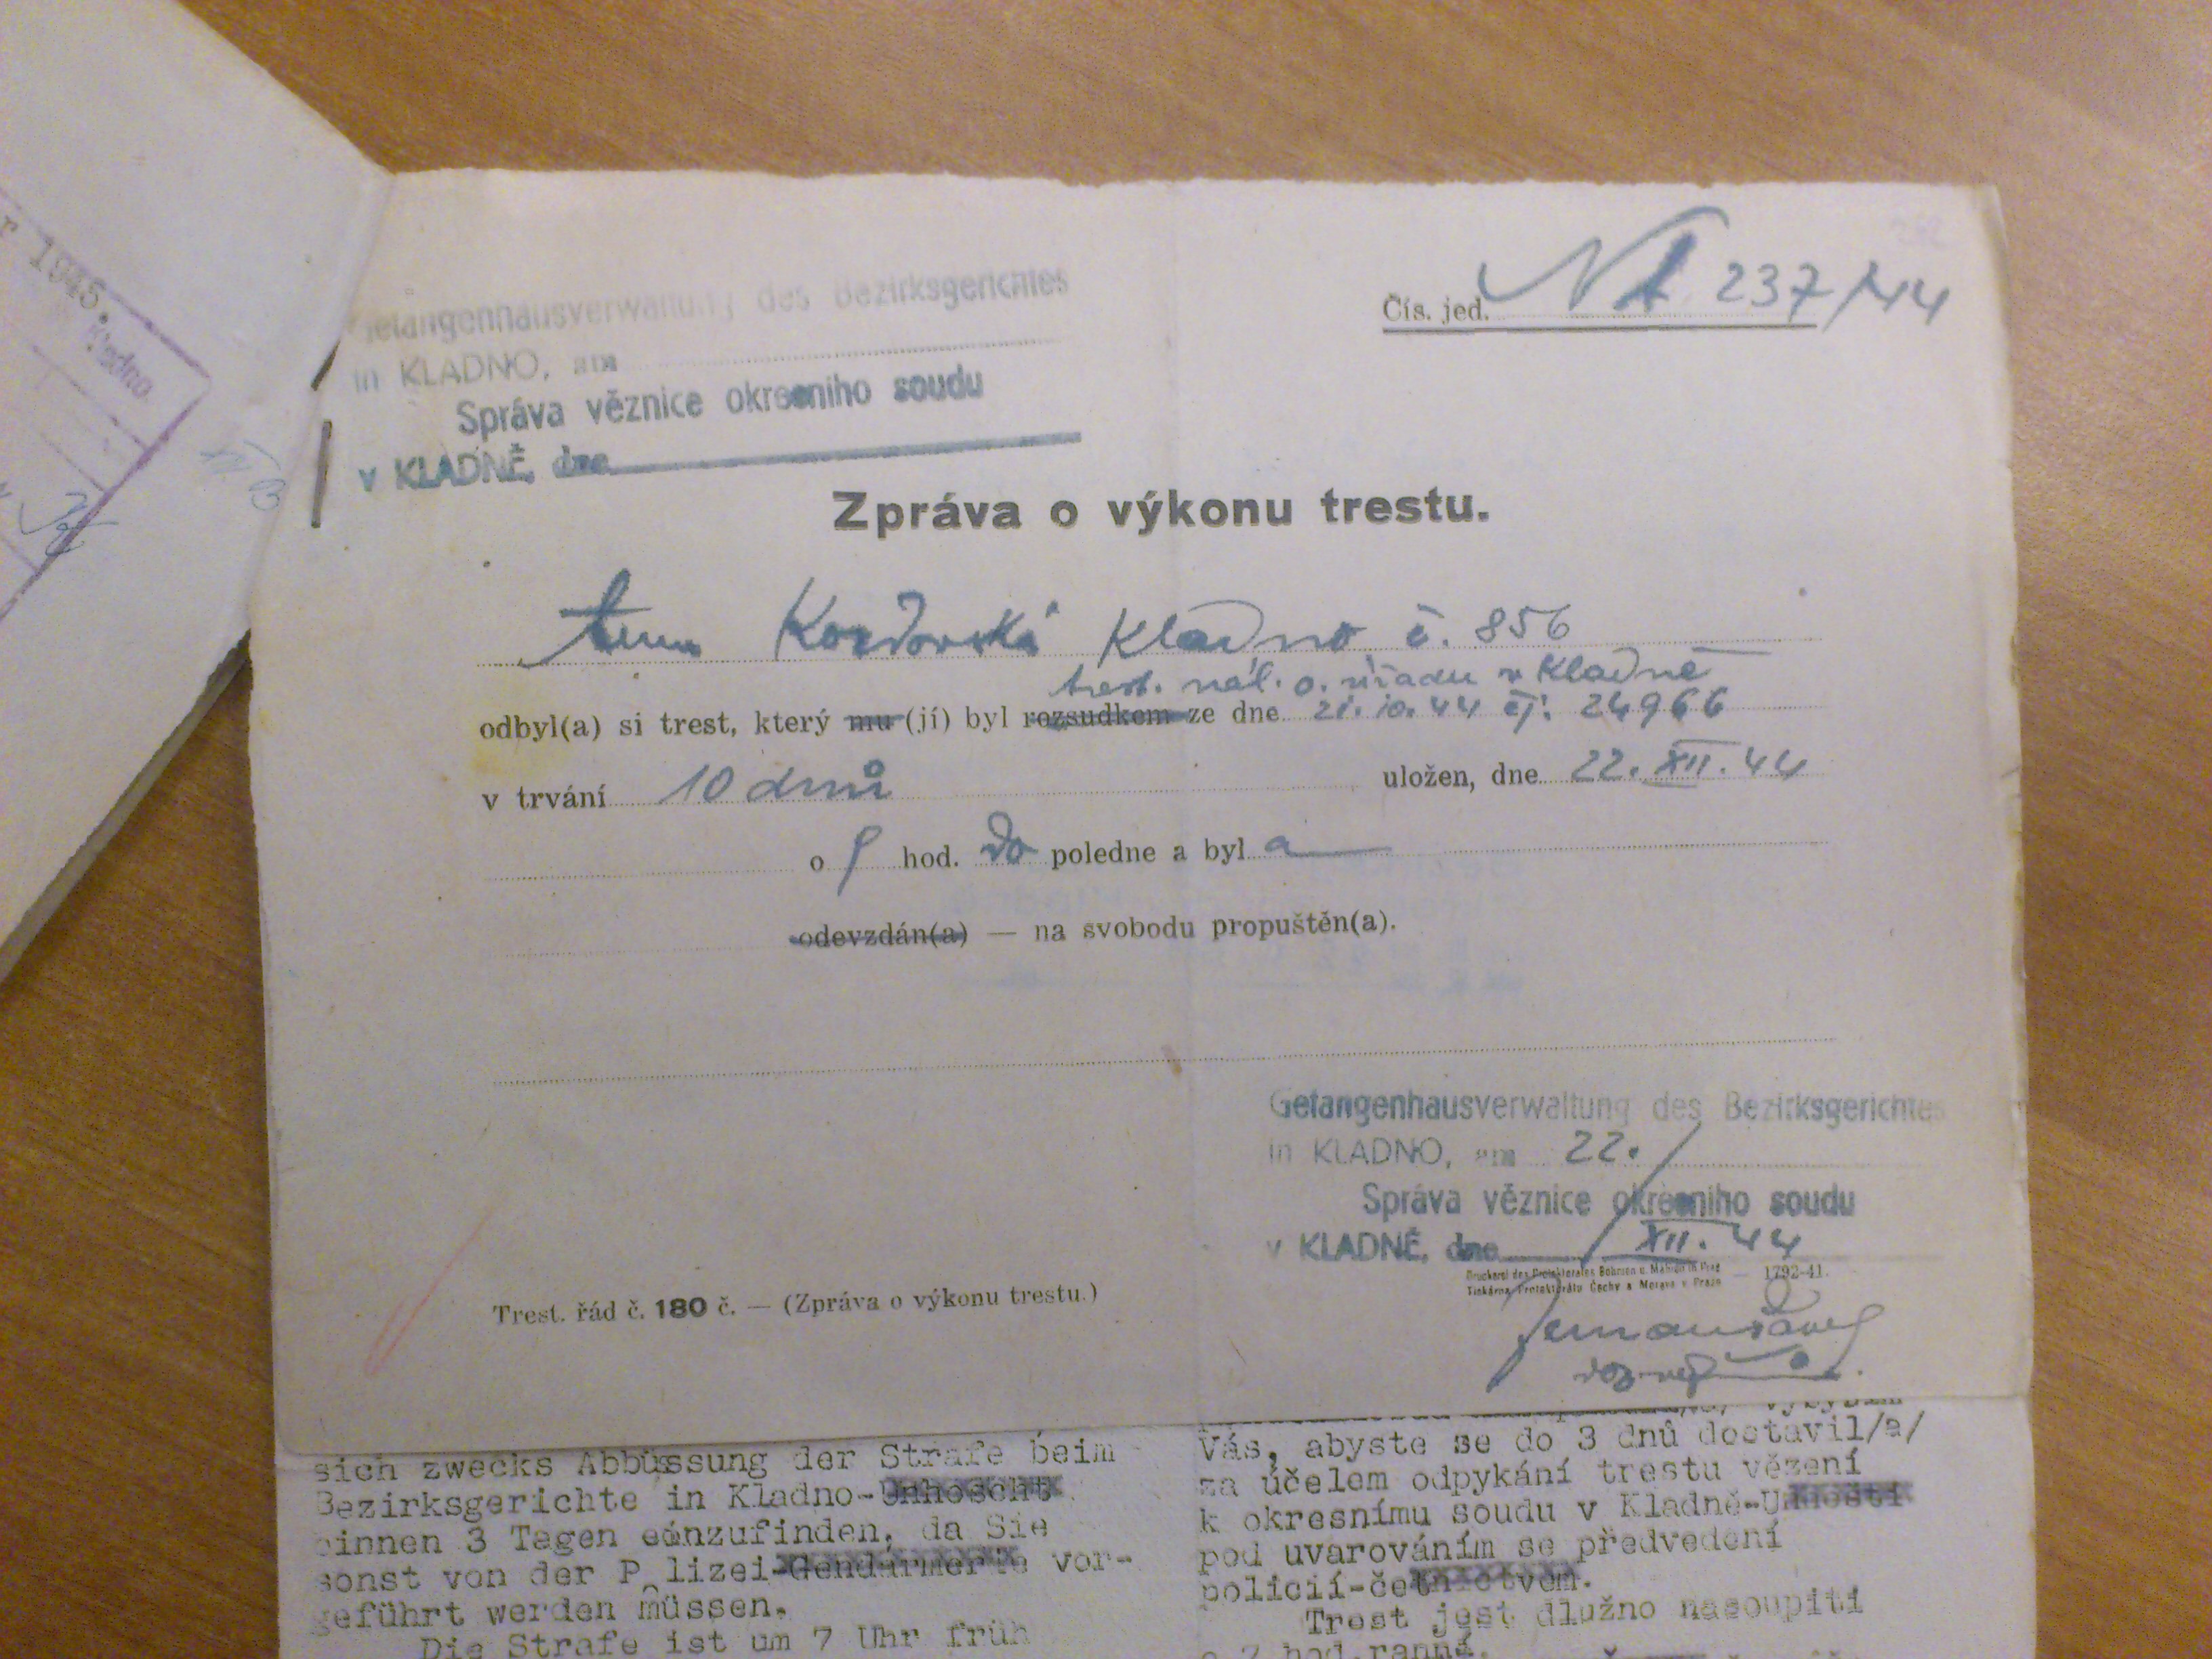 r 1945.
Kladno
Gefangenhausverwaltung des Bezirksgerichtes
in KLADNO, am
Správa věznice okresního soudu
v KLADNĚ, dne
Čís. jed. Nt 237/44
Zpráva o výkonu trestu.
Kladno č. 856
trest. nál. o. úřadu v Kladně
odbyl(a) si trest, který mu (jí) byl rozsudkem ze dne 21.10.44 čj. 24966
v trvání 10 dnů uložen, dne 22. XII. 44
o hod. do poledne a byl a
odevzdán(a) — na svobodu propuštěn(a).
Gefangenhausverwaltung des Bezirksgerichtes
in KLADNO, am 22./
Správa věznice okresního soudu
v KLADNĚ, dne XII. 44
Druckerei des Protektorates Böhmen u. Mähren in Prag — 1792-41.
Tiskárna Protektorátu Čechy a Morava v Praze
Trest. řád č. 180 č. — (Zpráva o výkonu trestu.)
sich zwecks Abbüssung der Strafe beim
Bezirksgerichte in Kladno-Unhoscht
binnen 3 Tagen einzufinden, da Sie
sonst von der P lizei-Gendarmerie vor-
geführt werden müssen.
Die Strafe ist um 7 Uhr früh
Vás, abyste se do 3 dnů dostavil/a/
za účelem odpykání trestu vězení
k okresnímu soudu v Kladně-Unhošti
pod uvarováním se předvedení
policií-četnictvem.
Trest jest dlužno nasoupiti
o 7 hod.ranná.